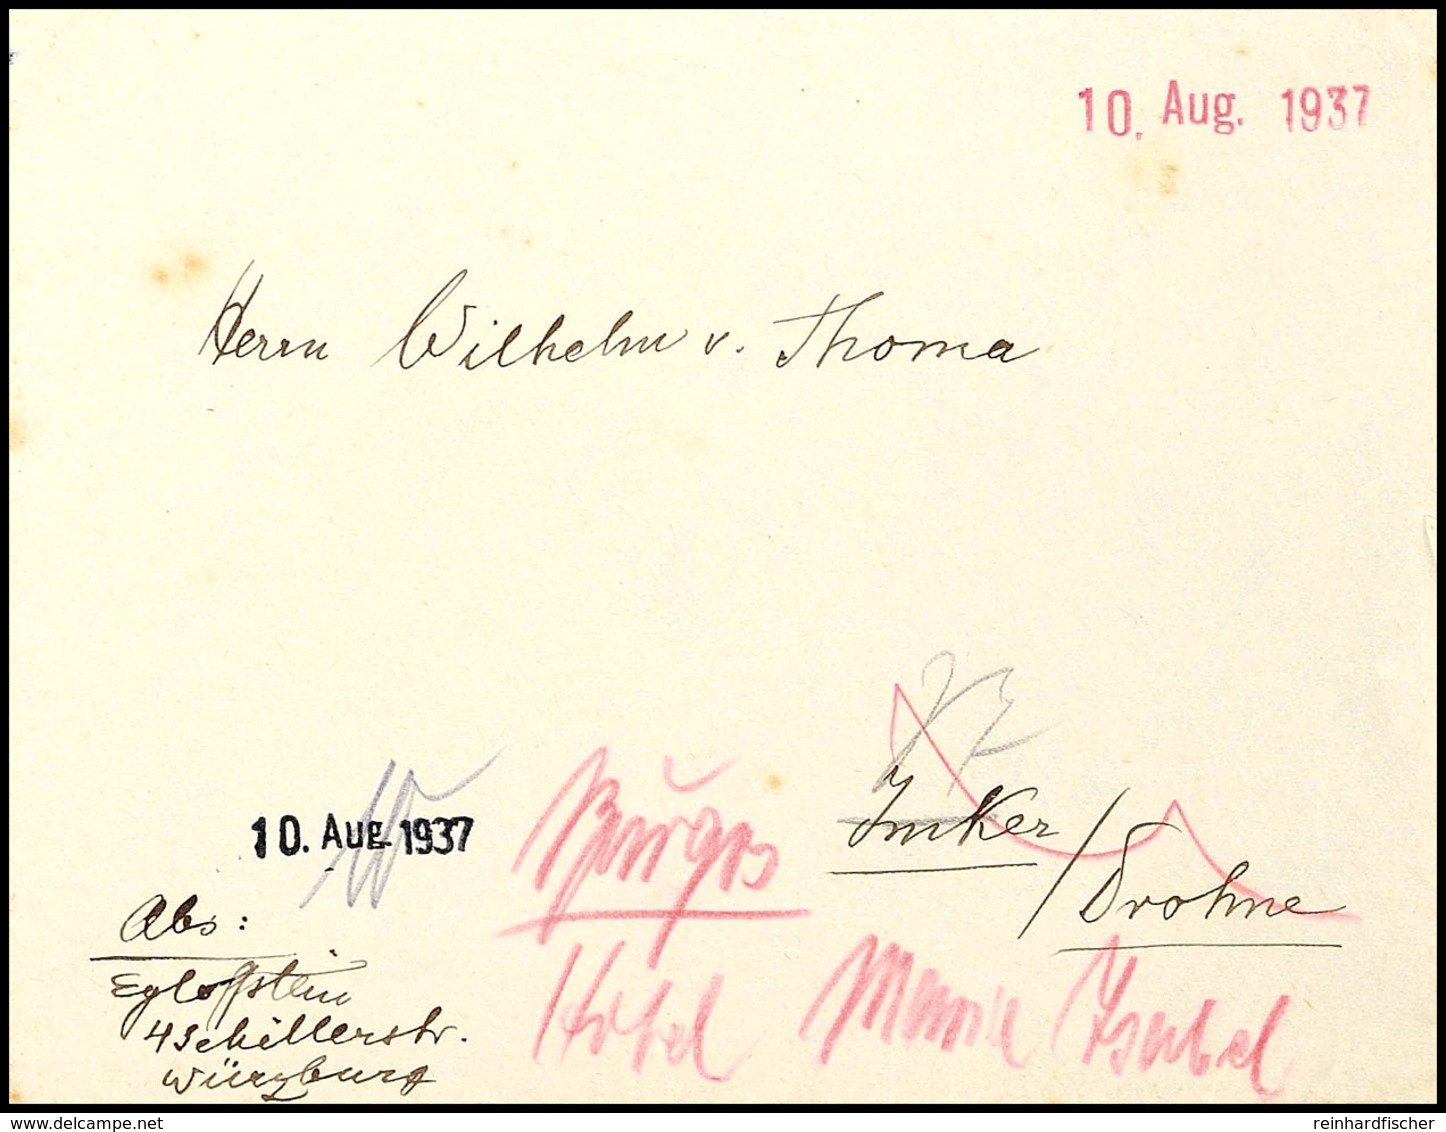 10. Aug. 1937
Herrn Wilhelm v. Thoma
Imker / Drohne
10. Aug. 1937
Burgos
Hotel Maria Isabel
Abs:
Egloffstein
4 Schillerstr.
Würzburg
delcampe.net
reinhardfischer